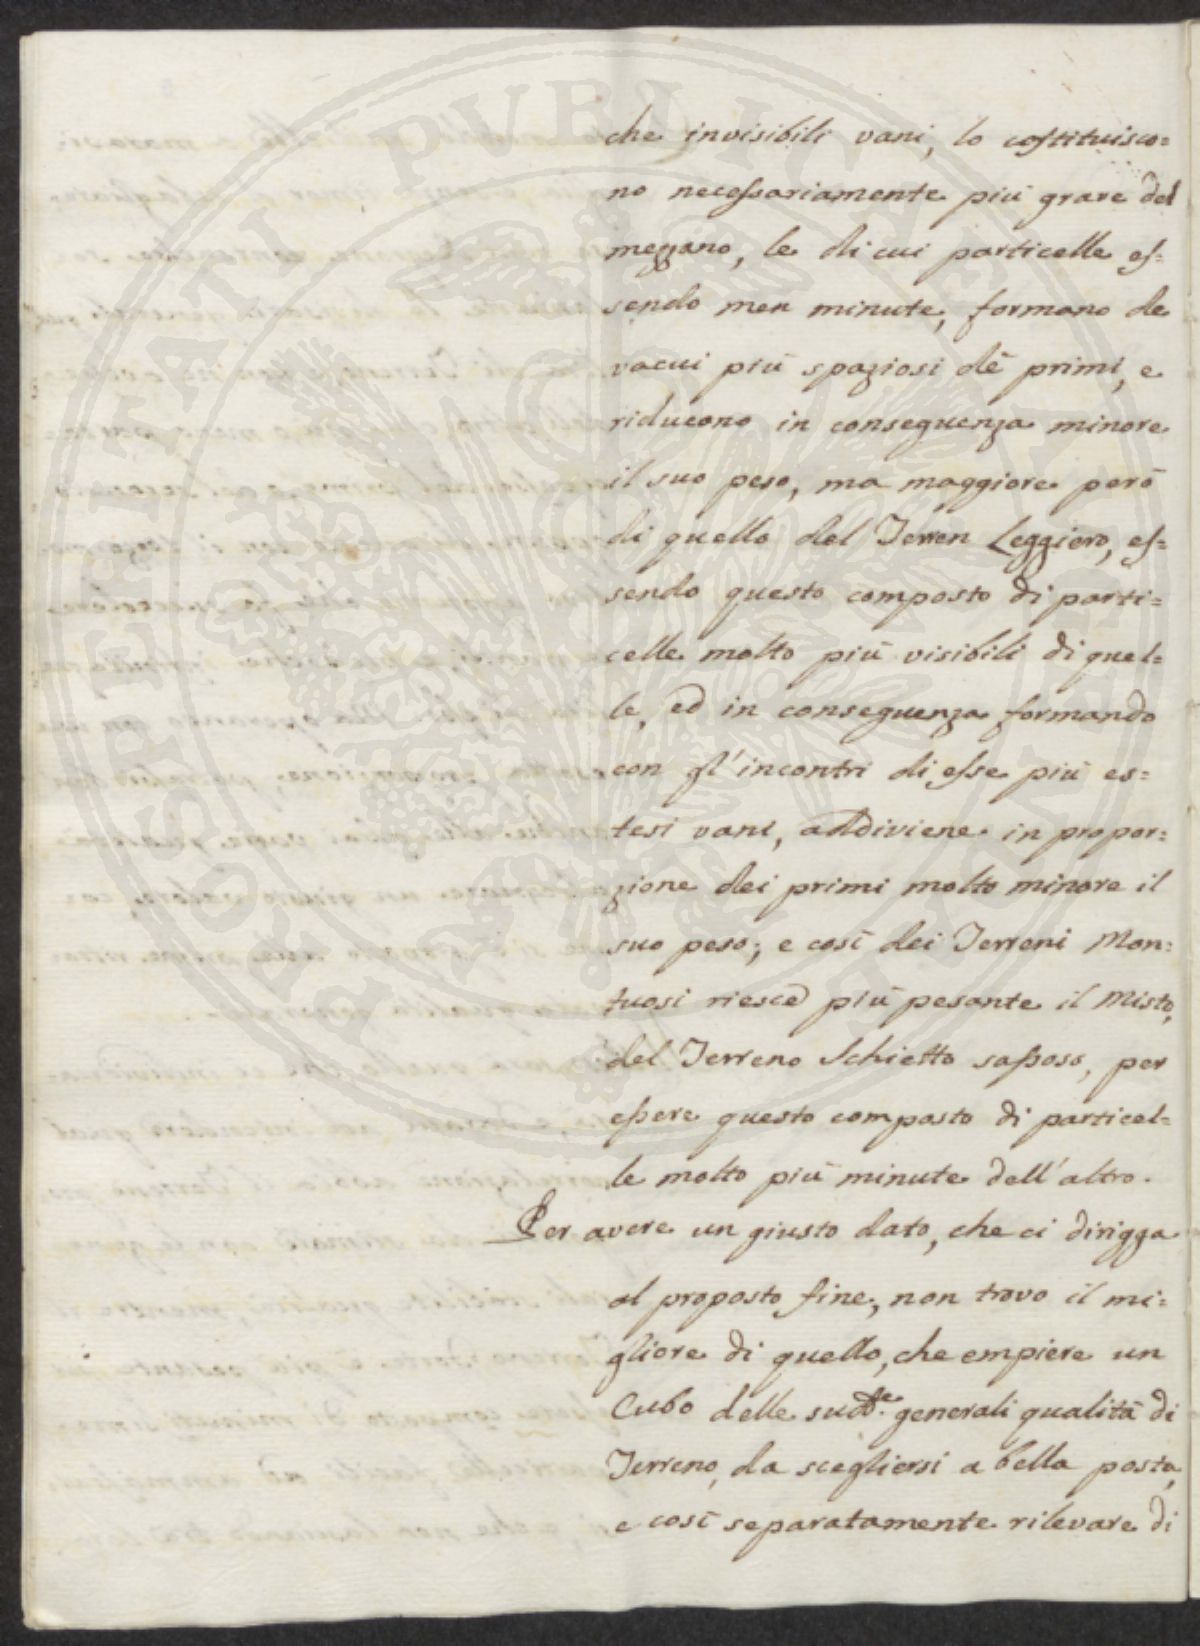 che invisibili vani, lo costituisco=
no necessariamente più grave del
mezzano, le di cui particelle es=
sendo men minute, formano de
vacui più spaziosi dè primi, e
riducono in conseguenza minore
il suo peso, ma maggiore però
di quello del Terren Leggiero, es=
sendo questo composto di parti=
celle molto più visibili di quel=
le, ed in conseguenza formando
con gl'incontri di esse più es=
tesi vani, addiviene in propor=
zione dei primi molto minore il
suo peso; e così dei Terreni Mon=
tuosi riesce più pesante il Misto,
del Terreno Schietto sassoso, per
essere questo composto di particel=
le molto più minute dell'altro.
Per avere un giusto dato, che ci dirigga
al proposto fine, non trovo il mi=
gliore di quello, che empiere un
Cubo delle sudd.e generali qualità di
Terreno, da scegliersi a bella posta,
e così separatamente rilevare di
PROSPERITATI PVBLICAE AVGENDAE